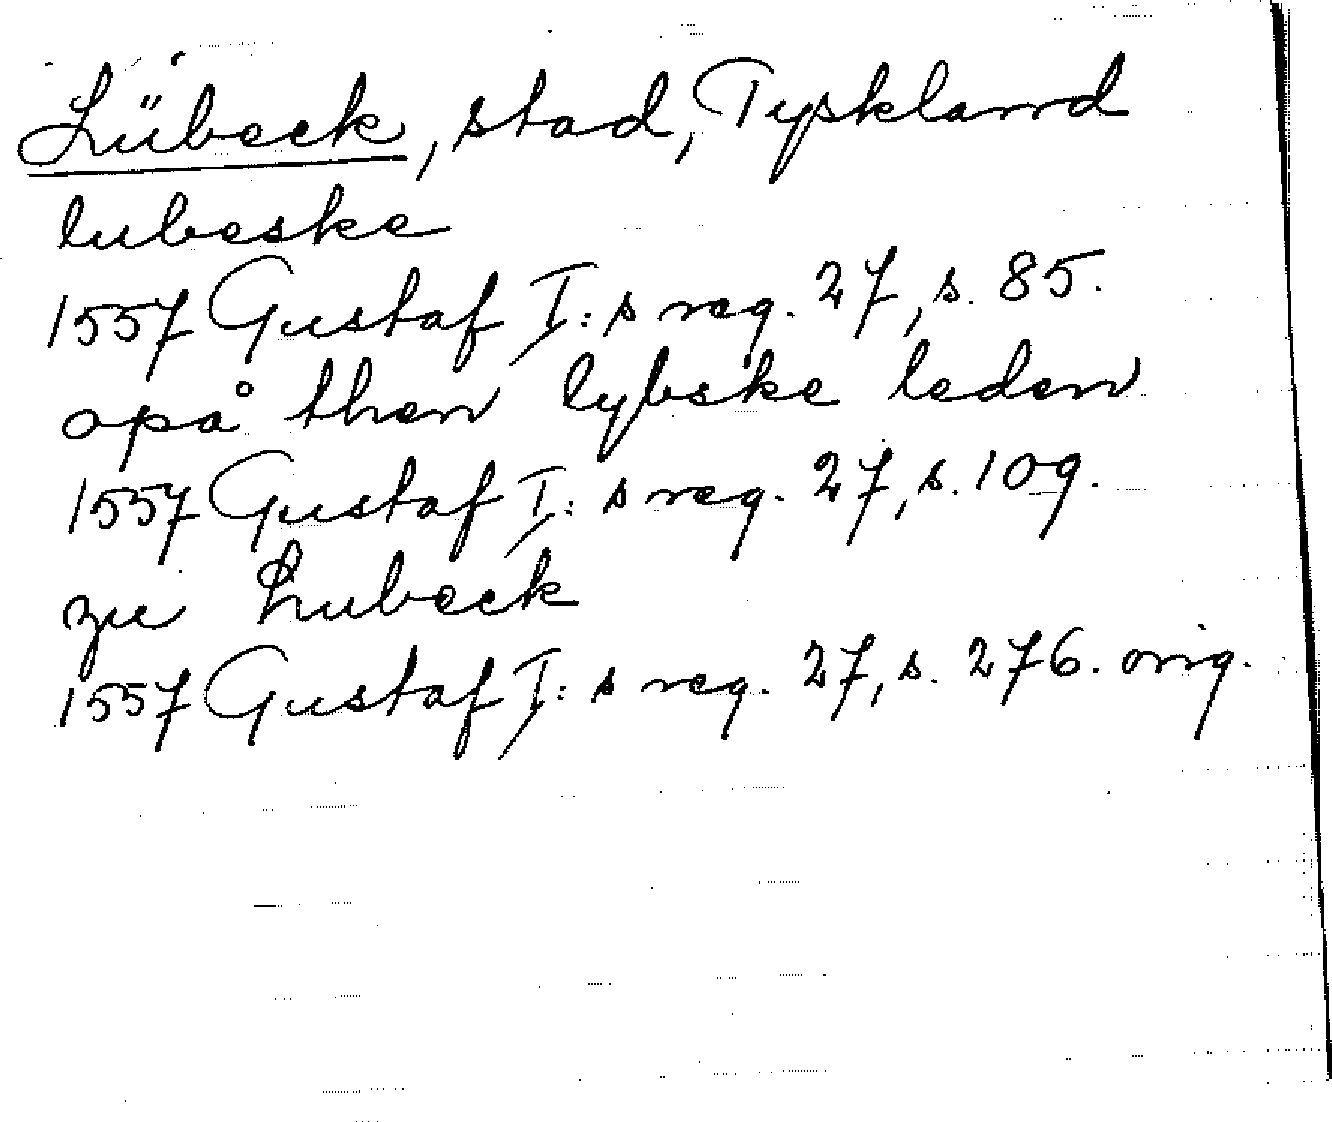 Lübeck, stad, Tyskland
lubeske
1557 Gustaf I:s reg. 27, s. 85.
opå then lybske leden
1557 Gustaf I:s reg. 27, s. 109.
zu Lubeck
1557 Gustaf I:s reg. 27, s. 276. orig.